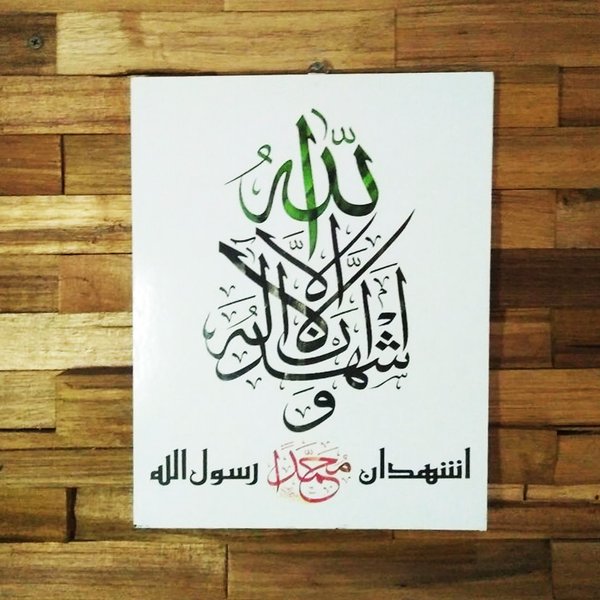 أشهد أن لا إله إلا الله
و
اشهدان محمدًا رسول الله